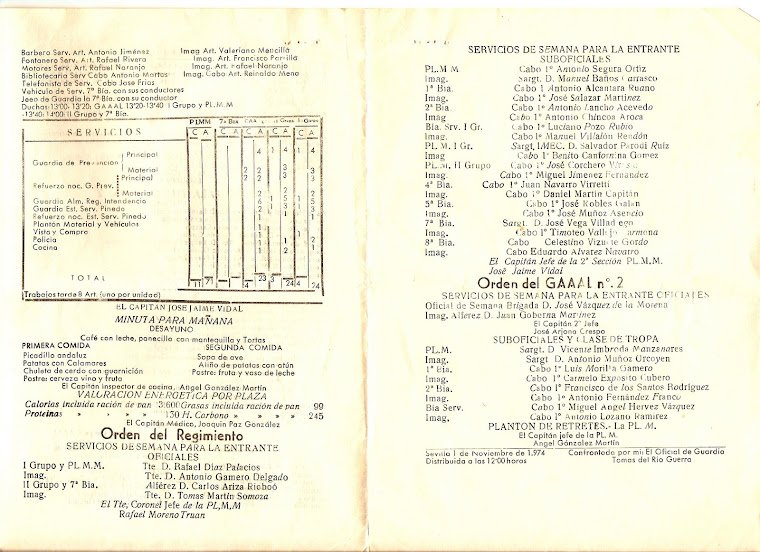 Barbero Serv. Art. Antonio Jiménez
Fontanero Serv. Art. Rafael Rivera
Motores Serv. Art. Rafael Naranjo
Bibliotecaria Serv Cabo Antonio Martos
Telefonista de Serv. Cabo Jose Frias
Vehículo de Serv. 7ª Bía. con sus conductores
Jeen de Guardia la 7ª Bía. con su conductor
Duchas: 13'00-13'20: GAAAL 13'20-13'40: I Grupo y PL.M.M
-13'40: 14'00: II Grupo y 7ª Bía.
Imag Art. Valeriano Mencilla
Imag Art. Francisco Parrilla
Imag. Art. Rafael Naranjo
Imag. Cabo Art. Reinaldo Mena
SERVICIOS
PLMM 7ª Bía
C A C A C A C A C A
Guardia de Prevención
Principal
Material
Refuerzo noc. G. Prev.
Principal
Material
Guardia Alm. Reg. Intendencia
Guardia Est. Serv. Pineda
Refuerzo noc. Est. Serv. Pineda
Plantón Material y Vehículos
Vista y Compra
Policia
Cocina
TOTAL
Trabajos tarde 8 Art. (uno por unidad)
EL CAPITAN JOSE JAIME VIDAL
MINUTA PARA MAÑANA
DESAYUNO
Café con leche, panecillo con mantequilla y Tortas
PRIMERA COMIDA
Picadillo andaluz
Patatas con Calamares
Chuleta de cerdo con guarnición
Postre: cerveza vino y fruta
SEGUNDA COMIDA
Sopa de ave
Aliño de patatas con atún
Postre: fruta y vaso de leche
El Capitán inspector de cocina, Angel González Martín
VALORACION ENERGETICA POR PLAZA
Calorias incluida ración de pan 3.600 Grasas incluida ración de pan 99
Proteinas » » » » 130 H. Carbono » » » » 245
El Capitán Médico, Joaquin Paz González
Orden del Regimiento
SERVICIOS DE SEMANA PARA LA ENTRANTE
OFICIALES
I Grupo y PL.M.M. Tte. D. Rafael Diaz Palacios
Imag. Tte. D. Antonio Gamero Delgado
II Grupo y 7ª Bía. Alférez D. Carlos Ariza Rioboó
Imag. Tte. D. Tomas Martín Somoza
El Tte, Coronel Jefe de la PL,M,M
Rafael Moreno Truan
SERVICIOS DE SEMANA PARA LA ENTRANTE
SUBOFICIALES
PL.M M Cabo 1º Antonio Segura Ortiz
Imag. Sargt. D. Manuel Baños Carrasco
1ª Bía. Cabo 1 Antonio Alcantara Ruano
Imag. Cabo 1º José Salazar Martínez
2ª Bía. Cabo 1º Antonio Zancho Acevedo
Imag Cabo 1º Antonio Chincoa Aroca
Bía. Serv. I Gr. Cabo 1º Luciano Pozo Rubio
Imag. Cabo 1º Manuel Villalón Rendón
PL.M. I Gr. Sargt, IMEC. D. Salvador Parodi Ruiz
Imag Cabo 1º Benito Cantomina Gomez
PL.M, II Grupo Cabo 1º José Corchero
Imag. Cabo 1º Miguel Jimenez Fernandez
4ª Bía. Cabo 1º Juan Navarro Virretti
Imag. Cabo 1º Daniel Martín Capitán
5ª Bía. Cabo 1º José Robles Galan
Imag. Cabo 1º José Muñoz Asencio
7ª Bía. Sargt. D. José Vega Villadiego
Imag. Cabo 1º Timoteo Vallejo Carmona
8ª Bía. Cabo Celestino Vizuete Gordo
Imag Cabo Eduardo Alvarez Navarro
El Capitán Jefe de la 2ª Sección PL.M.M.
José Jaime Vidal
Orden del GAAAL nº. 2
SERVICIOS DE SEMANA PARA LA ENTRANTE OFICIALES
Oficial de Semana Brigada D. José Vázquez de la Morena
Imag. Alférez D. Juan Goberna Martínez
El Capitán 2º Jefe
José Arjona Crespo
SUBOFICIALES Y CLASE DE TROPA
PL.M. Sargt. D. Vicente Imbroda Manzanares
Imag. Sargt. D. Antonio Muñoz Orcoyen
1ª Bía. Cabo 1º Luis Morilla Gamero
Imag. Cabo 1º Carmelo Exposito Cubero
2ª Bía. Cabo 1º Francisco de los Santos Rodríguez
Imag. Cabo 1º Antonio Fernández Franco
Bía Serv. Cabo 1º Miguel Angel Hervez Vázquez
Imag. Cabo 1º Antonio Lozano Ramirez
PLANTON DE RETRETES.- La PL. M.
El Capitán jefe de la PL. M.
Angel Gónzalez Martín
Sevilla 1 de Noviembre de 1.974
Distribuida a las 12'00 horas
Confrontado por mi: El Oficial de Guardia
Tomas del Rio Guerra